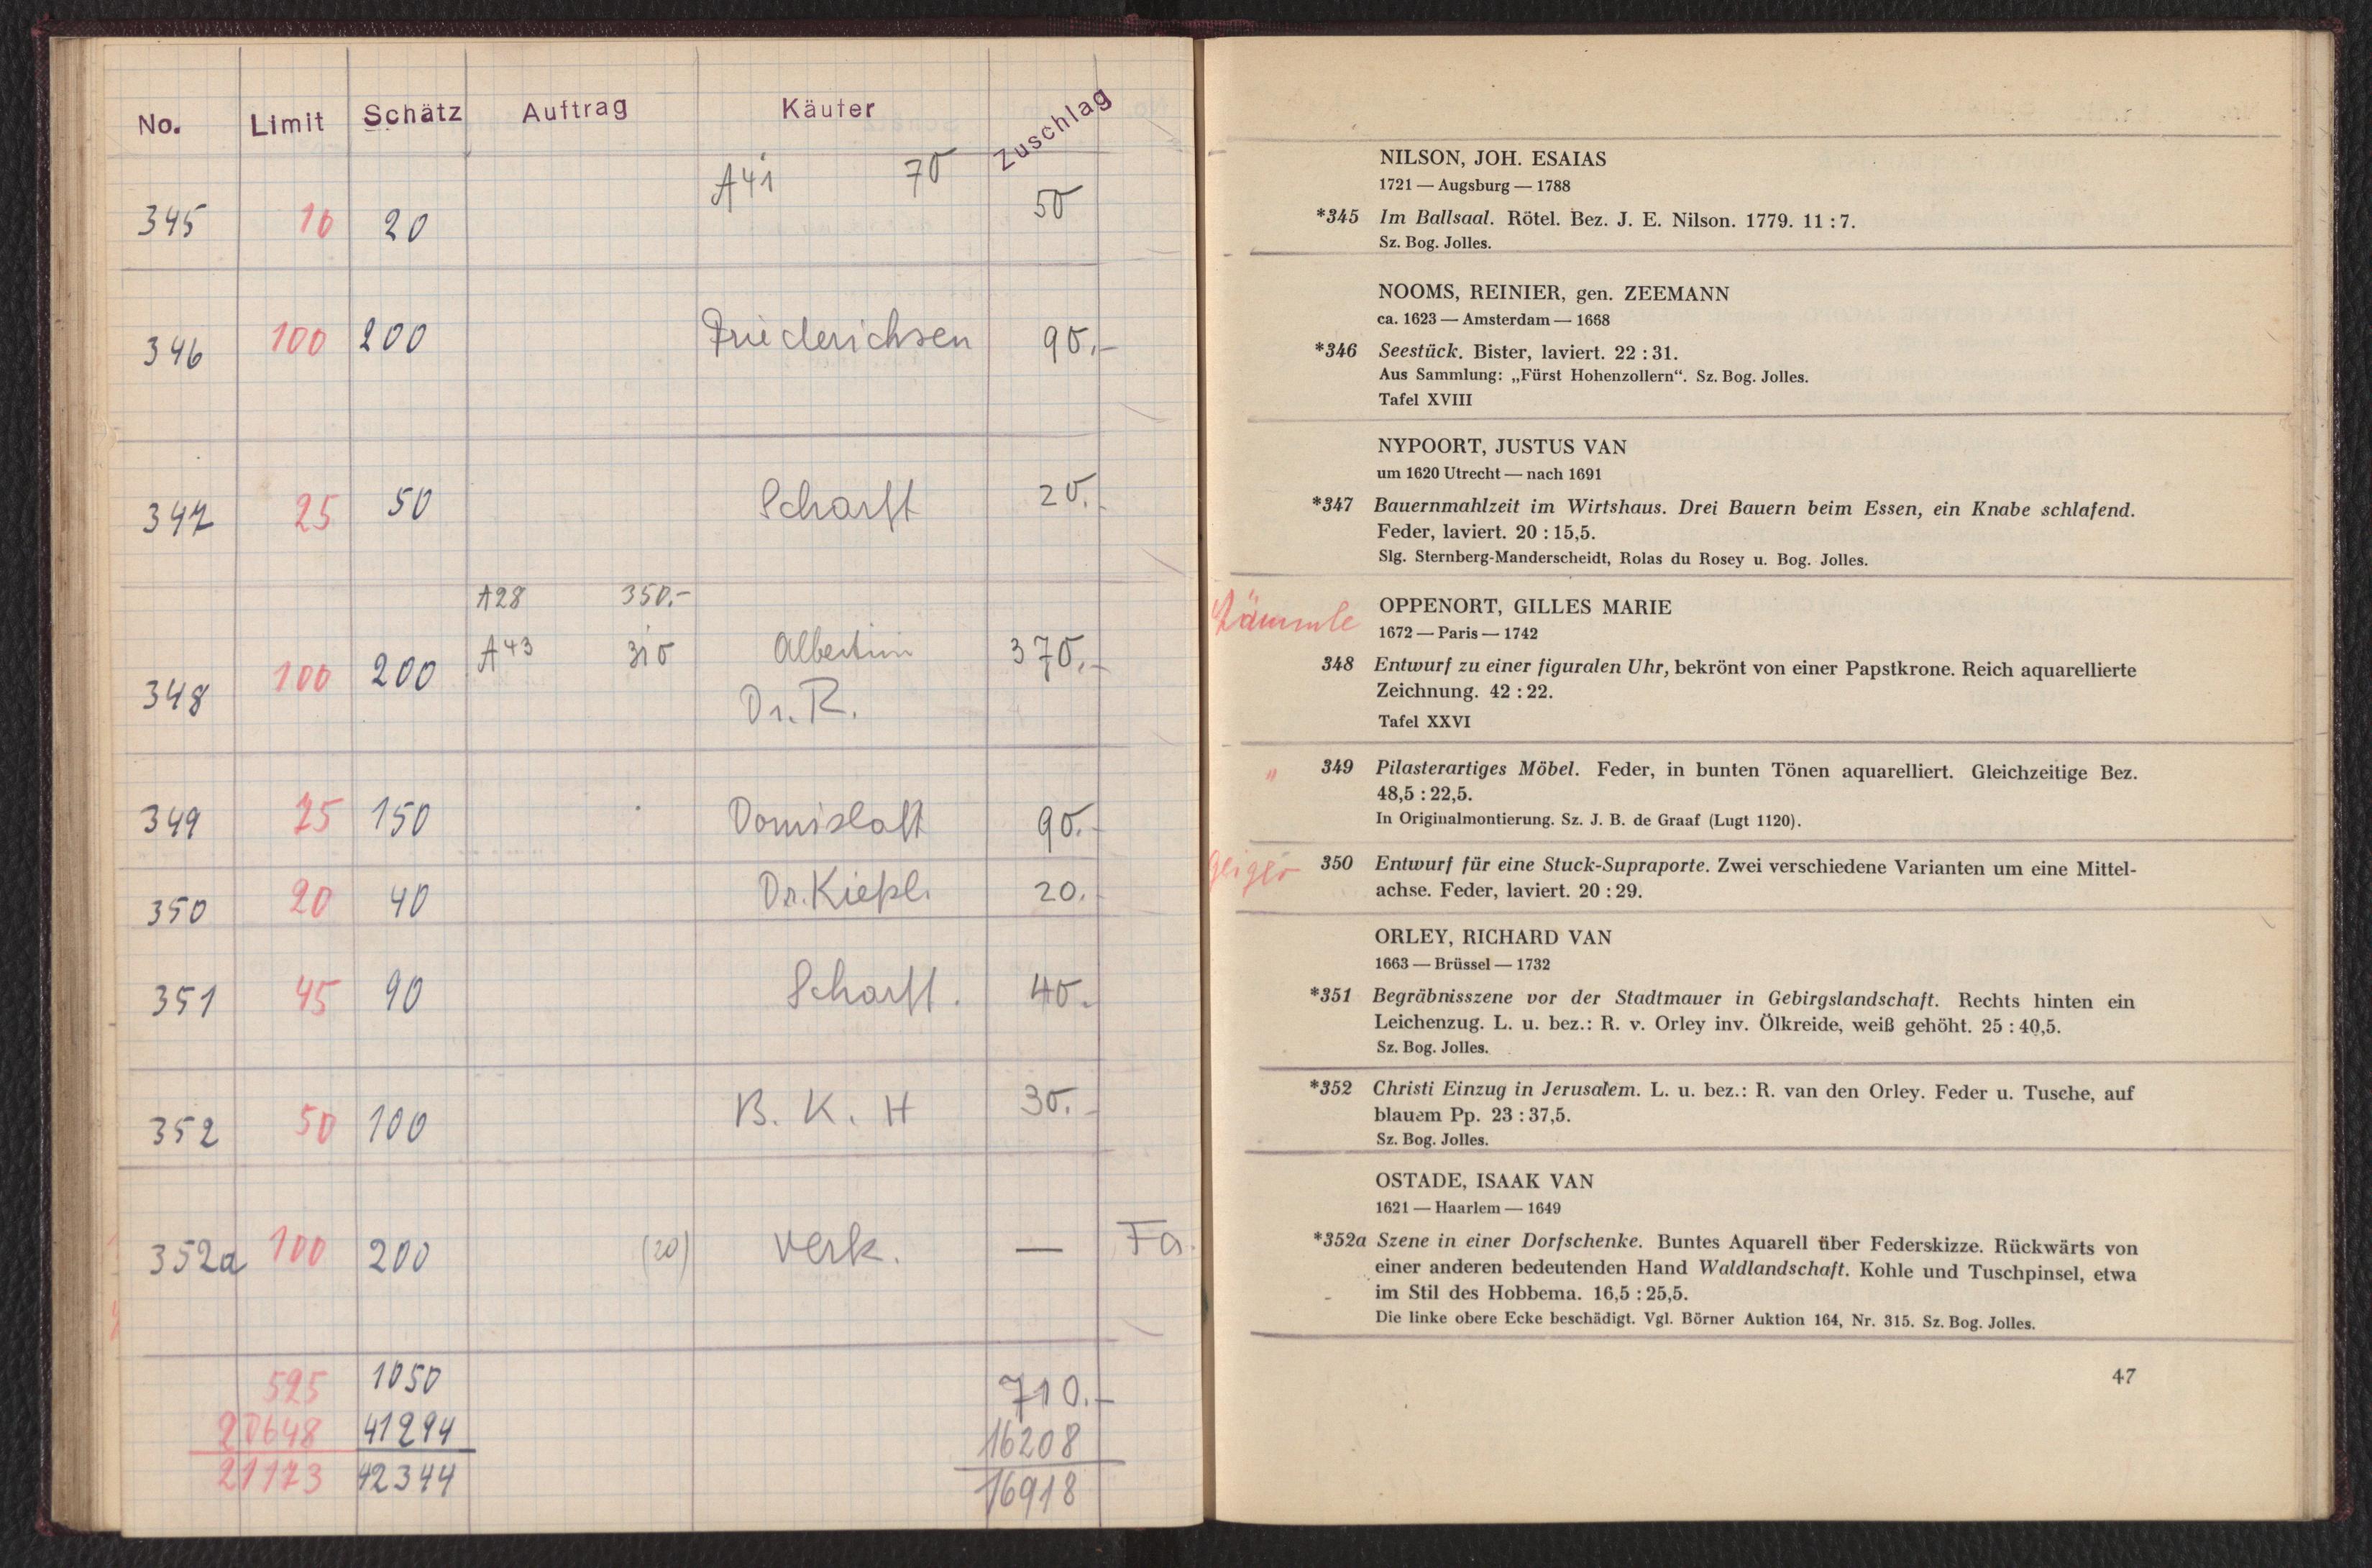 No. Limit Schätz Auftrag Käufer Zuschlag
A41 70
345 10 20 50
346 100 200 Friederichsen 90.-
347 25 50 Scharff 20.-
A28 350.-
348 100 200 A43 310 Albertini 370.-
Dr. R.
349 75 150 Domislaff 90.-
350 20 40 Dr. Kießl. 20.
351 45 90 Scharff. 40.-
352 50 100 B. K. H 30.-
352a 100 200 (20) verk. — Fa.
525 1050 710.-
20648 41294 16208
21173 42344 16918
NILSON, JOH. ESAIAS
1721 — Augsburg — 1788
*345 Im Ballsaal. Rötel. Bez. J. E. Nilson. 1779. 11 : 7.
Sz. Bog. Jolles.
NOOMS, REINIER, gen. ZEEMANN
ca. 1623 — Amsterdam — 1668
*346 Seestück. Bister, laviert. 22 : 31.
Aus Sammlung: „Fürst Hohenzollern“. Sz. Bog. Jolles.
Tafel XVIII
NYPOORT, JUSTUS VAN
um 1620 Utrecht — nach 1691
*347 Bauernmahlzeit im Wirtshaus. Drei Bauern beim Essen, ein Knabe schlafend.
Feder, laviert. 20 : 15,5.
Slg. Sternberg-Manderscheidt, Rolas du Rosey u. Bog. Jolles.
Lämmle OPPENORT, GILLES MARIE
1672 — Paris — 1742
348 Entwurf zu einer figuralen Uhr, bekrönt von einer Papstkrone. Reich aquarellierte
Zeichnung. 42 : 22.
Tafel XXVI
" 349 Pilasterartiges Möbel. Feder, in bunten Tönen aquarelliert. Gleichzeitige Bez.
48,5 : 22,5.
In Originalmontierung. Sz. J. B. de Graaf (Lugt 1120).
Geiger 350 Entwurf für eine Stuck-Supraporte. Zwei verschiedene Varianten um eine Mittel-
achse. Feder, laviert. 20 : 29.
ORLEY, RICHARD VAN
1663 — Brüssel — 1732
*351 Begräbnisszene vor der Stadtmauer in Gebirgslandschaft. Rechts hinten ein
Leichenzug. L. u. bez.: R. v. Orley inv. Ölkreide, weiß gehöht. 25 : 40,5.
Sz. Bog. Jolles.
*352 Christi Einzug in Jerusalem. L. u. bez.: R. van den Orley. Feder u. Tusche, auf
blauem Pp. 23 : 37,5.
Sz. Bog. Jolles.
OSTADE, ISAAK VAN
1621 — Haarlem — 1649
*352a Szene in einer Dorfschenke. Buntes Aquarell über Federskizze. Rückwärts von
einer anderen bedeutenden Hand Waldlandschaft. Kohle und Tuschpinsel, etwa
im Stil des Hobbema. 16,5 : 25,5.
Die linke obere Ecke beschädigt. Vgl. Börner Auktion 164, Nr. 315. Sz. Bog. Jolles.
47